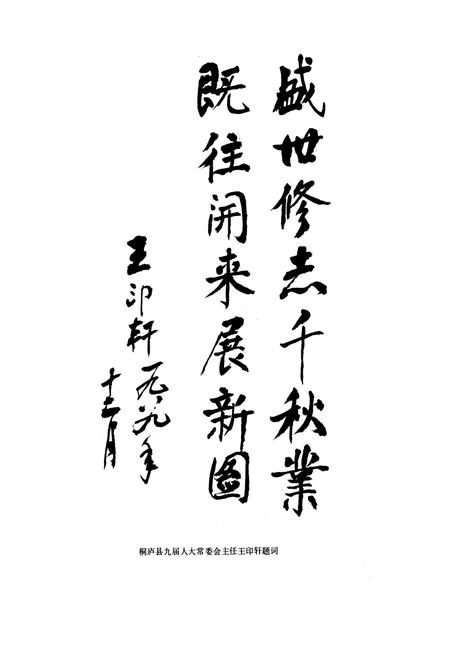 盛世修志千秋業
既往開来展新圖
王印轩一九八九年
十二月
桐庐县九届人大常委会主任王印轩题词